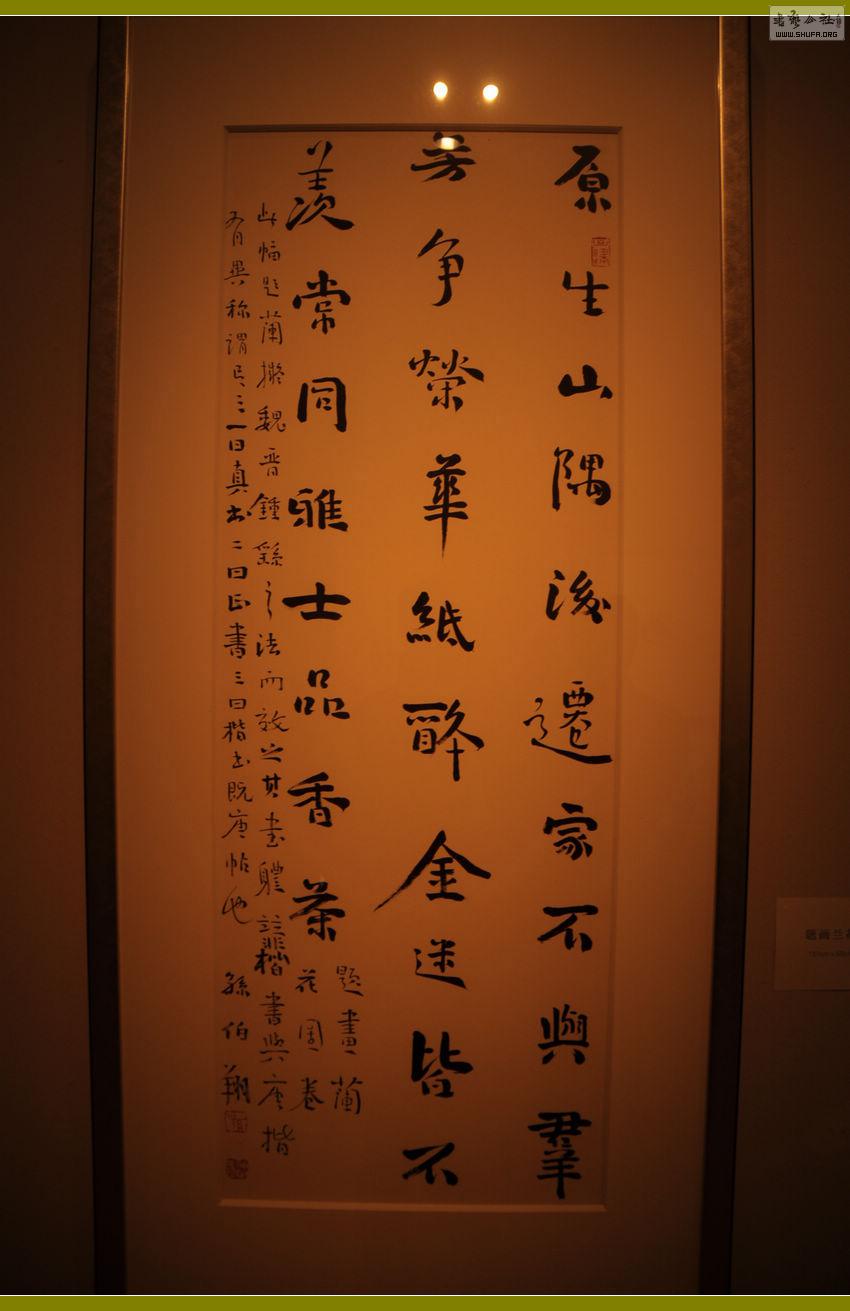 原生山隅後遷家不與羣
芳争榮華紙醉金迷皆不
羨常同雅士品香茶
題畫蘭
花圖卷
此幅題蘭擬魏晋鍾繇之法而效之其書體註非楷書與唐楷
有異称謂有三一曰真书二曰正書三曰楷书既唐帖也
孫伯翔
WWW.SHUFA.ORG